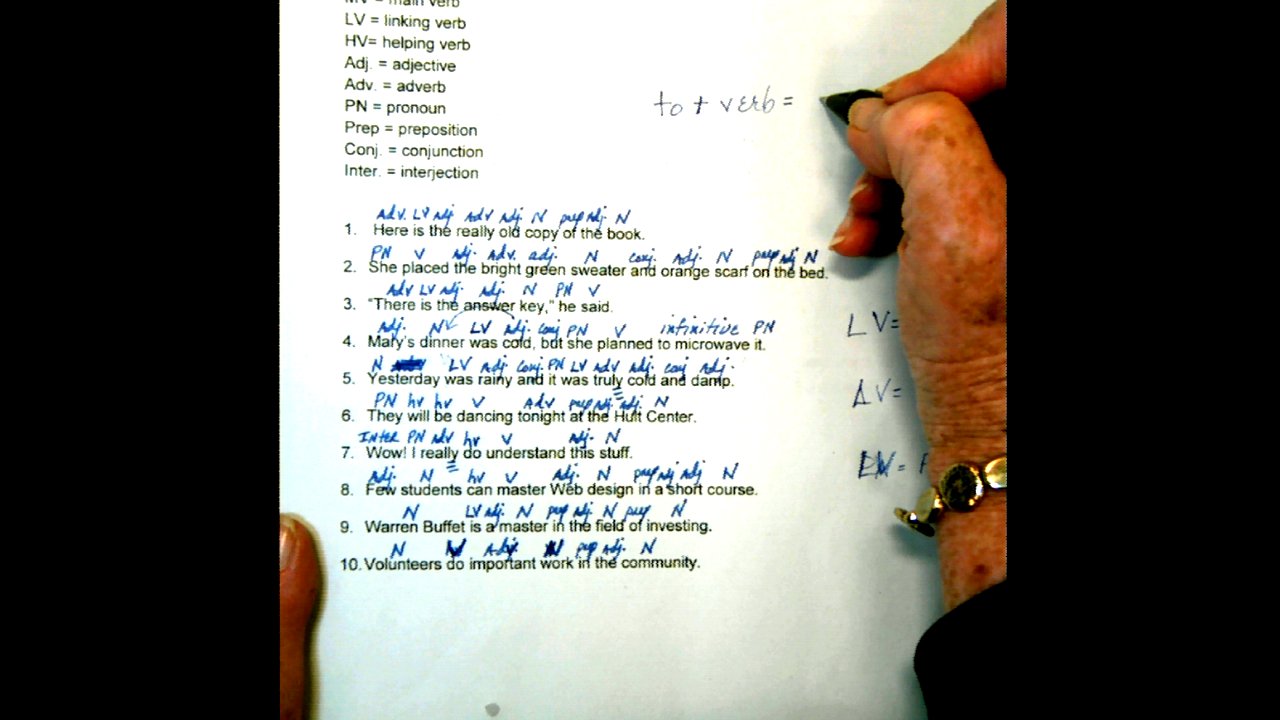 MV = main verb
LV = linking verb
HV= helping verb
Adj. = adjective
Adv. = adverb
to + verb =
PN = pronoun
Prep = preposition
Conj. = conjunction
Inter. = interjection
Adv. LV Adj. Adv Adj. N prep Adj. N
1. Here is the really old copy of the book.
PN V Adj. Adv. adj. N conj. Adj. N prep Adj N
2. She placed the bright green sweater and orange scarf on the bed.
Adv LV Adj. Adj. N PN V
3. "There is the answer key," he said.
Adj. N LV adj. conj PN V infinitive PN
LV=
4. Mary's dinner was cold, but she planned to microwave it.
N LV Adj. conj. PN LV Adv Adj. conj Adj.
5. Yesterday was rainy and it was truly cold and damp.
AV=
PN hv hv V Adv prep Adj. adj. N
6. They will be dancing tonight at the Hult Center.
Inter PN Adv hv V Adj. N
7. Wow! I really do understand this stuff.
Adj. N hv V Adj. N prep Adj Adj N
8. Few students can master Web design in a short course.
N LV Adj. N prep Adj. N prep N
9. Warren Buffet is a master in the field of investing.
N V Adj. N prep Adj. N
10. Volunteers do important work in the community.